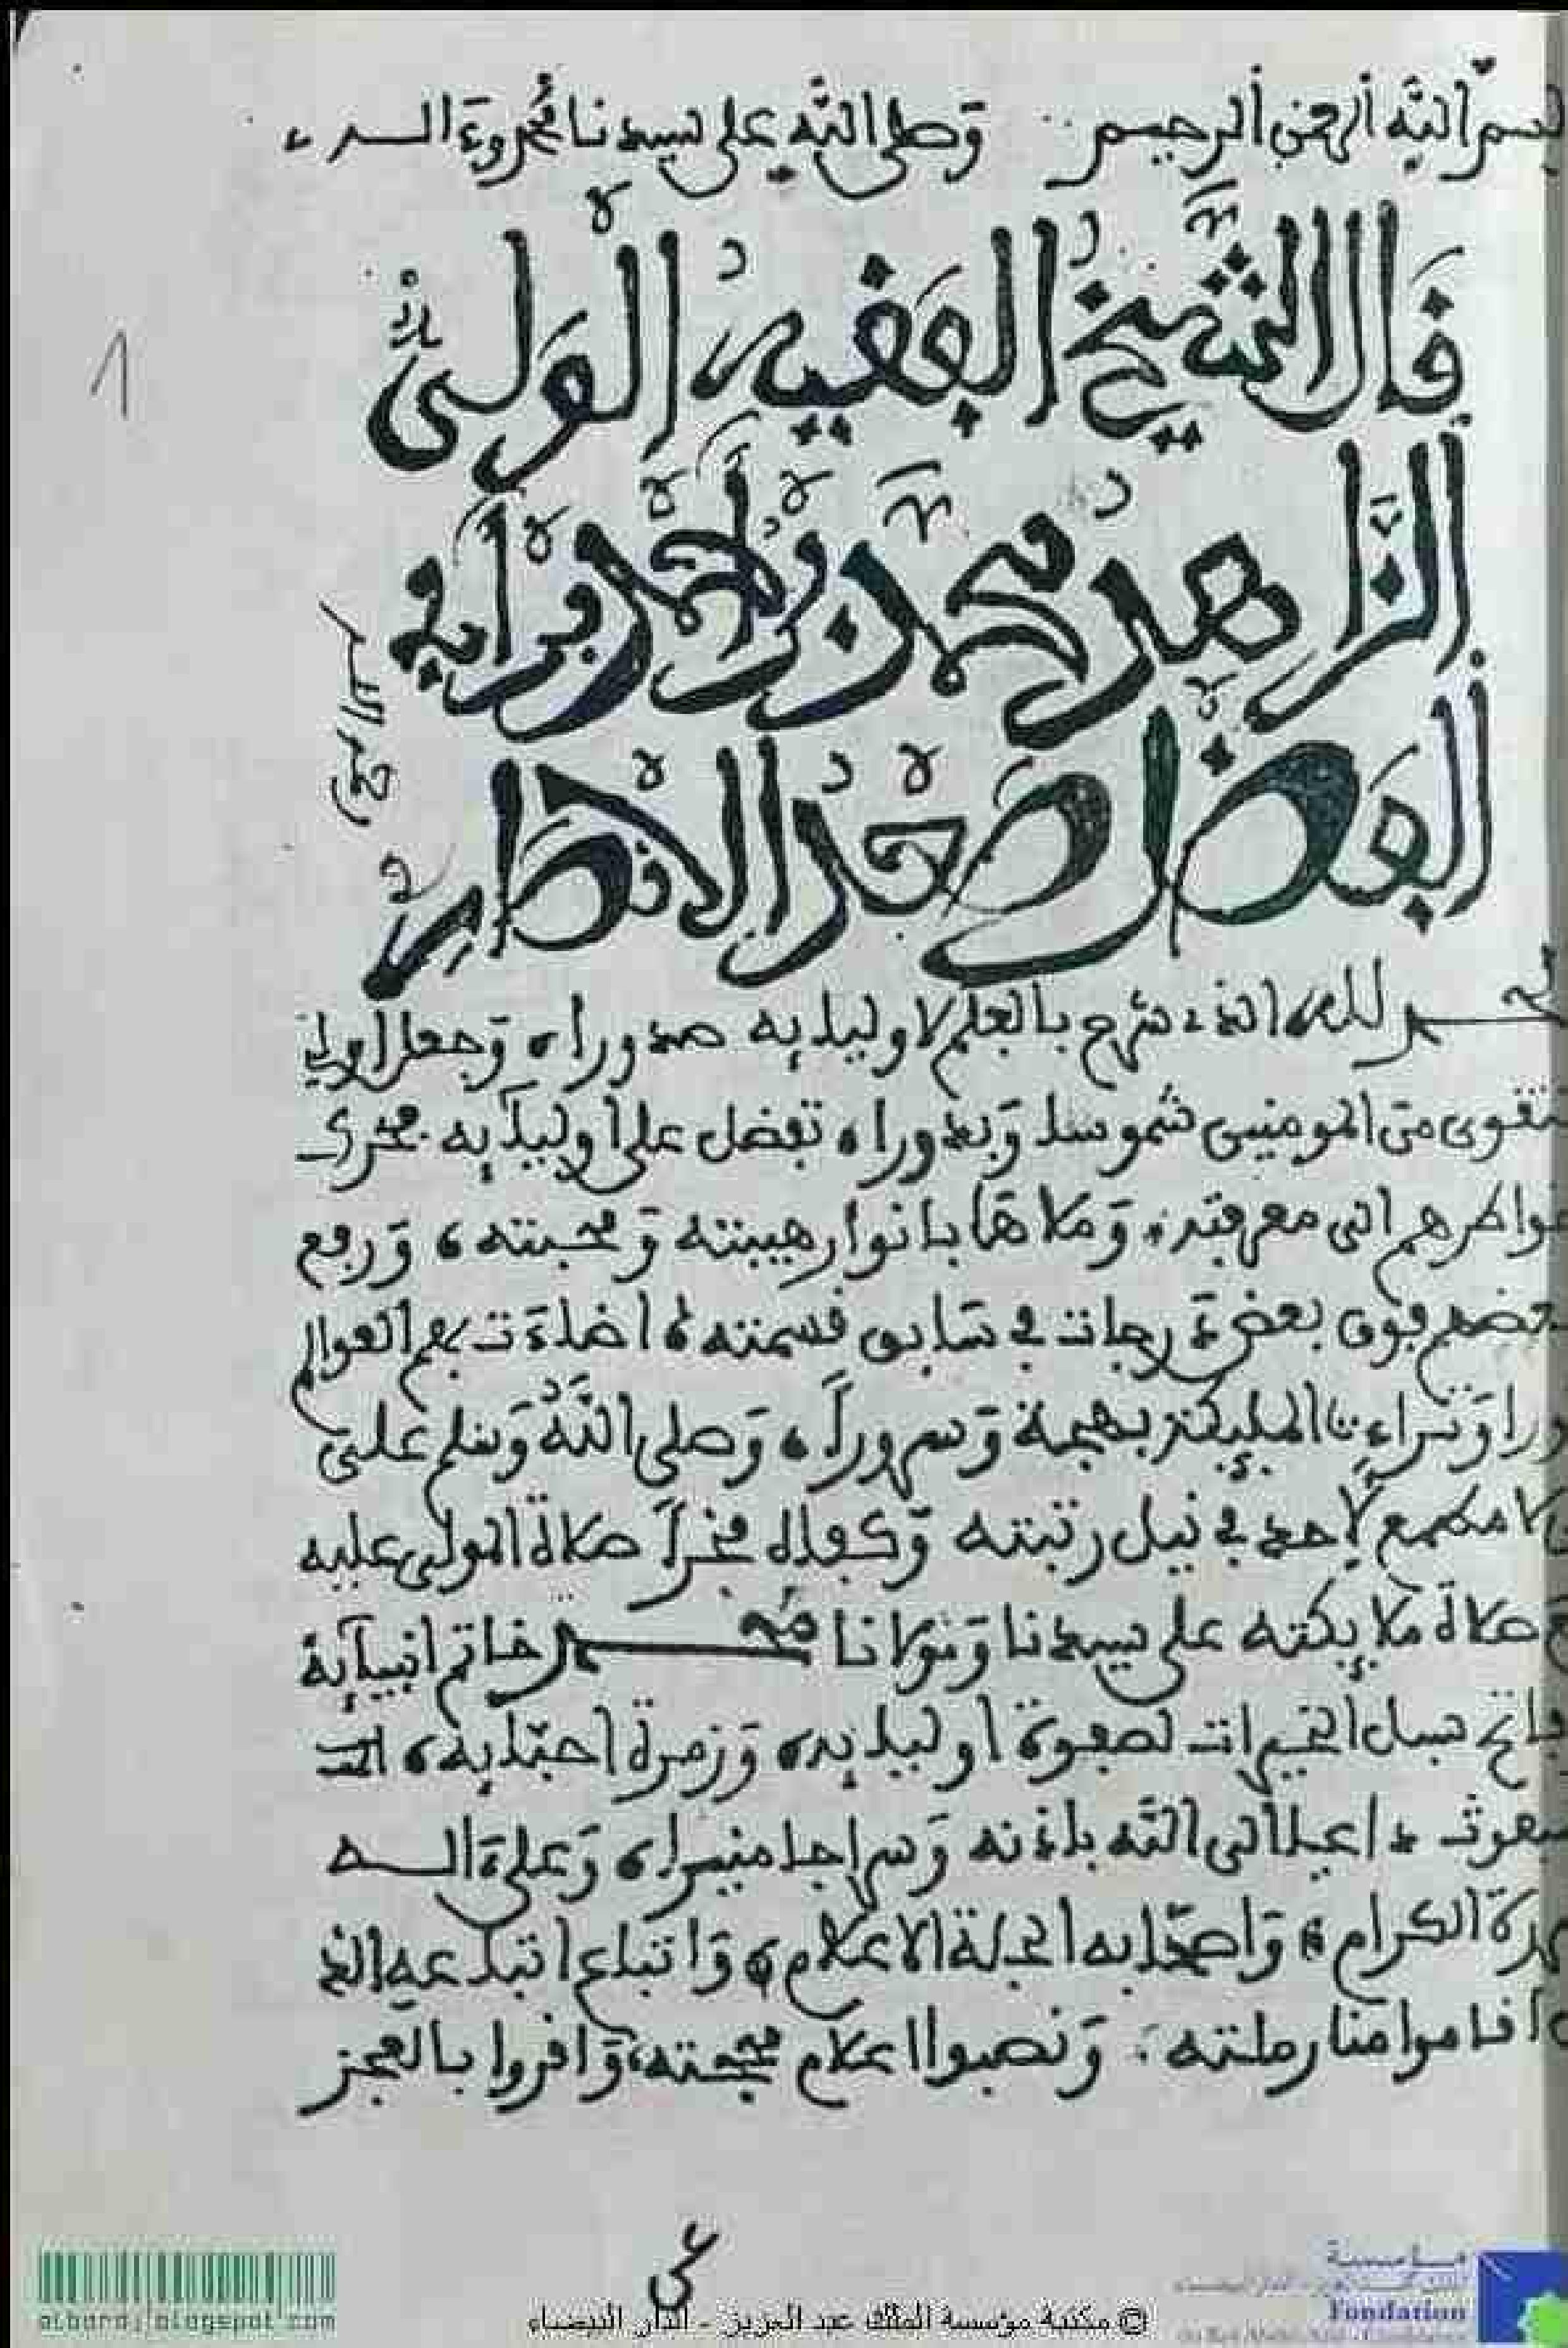 بسم الله الرحمن الرحيم وصلى الله على سيدنا محمد وءاله
قال الشيخ الفقيه الولي
الزاهد محمد بن أحمد بن أبي
الفضل صعد الأنصاري
الحمد لله الذي شرح بالعلم لأوليائه صدورا، وجعل أولي
التقوى من المومنين شموسا وبدورا، تفضل على أوليائه فحرك
خواطرهم إلى معرفته، وملأها بأنوار هيبته ومحبته، ورفع
بعضهم فوق بعض درجات في سابق قسمته، أضاءت بهم العوالم
وتراءت المليكة بهجة وسرورا، وصلى الله وسلم على
مطمع لأحد في نيل رتبته وكفاه فخرا صلاة المولى عليه
صلاة ملائكته على سيدنا ومولانا محمد خاتم أنبيائه
سبل الخيرات لصفوة أوليائه، وزمرة أحبائه،
المبعوث داعيا إلى الله بإذنه وسراجا منيرا، وعلى ءاله
البررة الكرام، وأصحابه الجلة الأعلام، وأتباع أتباعه الذ
أقاموا منار ملته، ونصبوا أعلام محجته، وأقروا بالعجز
1
albordj.blogspot.com
© مكتبة مؤسسة الملك عبد العزيز - الدار البيضاء
مؤسسة
Fondation